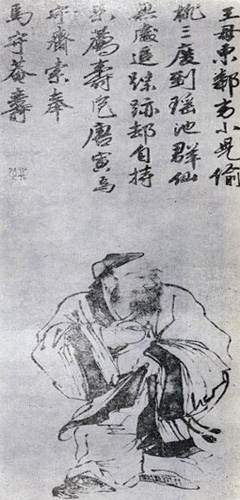 王母東鄰劣小兒偷
桃三度到瑤池群仙
無處追踪跡却自持
来薦壽巵唐寅為
守齋索奉
馬守菴壽